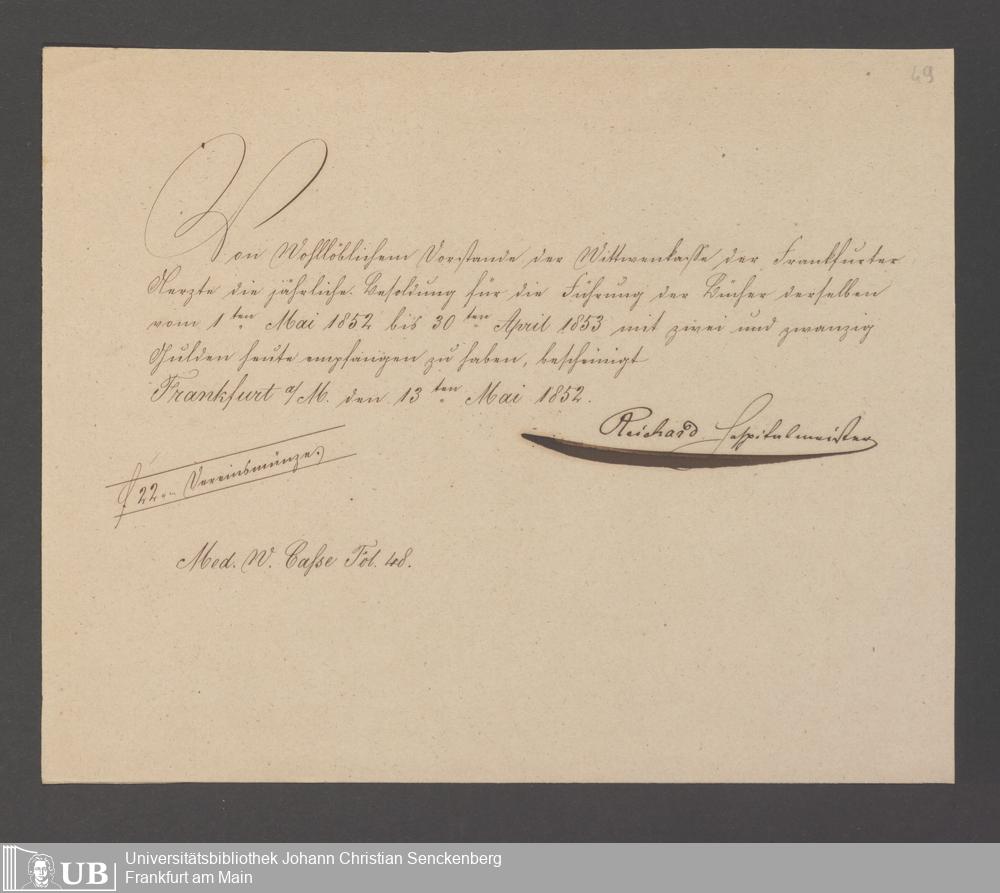 49
Von Wohllöblichem Vorstande der Wittwenkasse der Frankfurter
Aerzte die jährliche Besoldung für die Führung der Bücher derselben
vom 1ten Mai 1852 bis 30ten April 1853 mit zwei und zwanzig
Gulden heute empfangen zu haben, bescheinigt
Frankfurt a/M. den 13ten Mai 1852.
Reichard Hospitalmeister
f 22 Vereinsmünze.
Med. W. Casse Fol. 48.
UB
Universitätsbibliothek Johann Christian Senckenberg
Frankfurt am Main